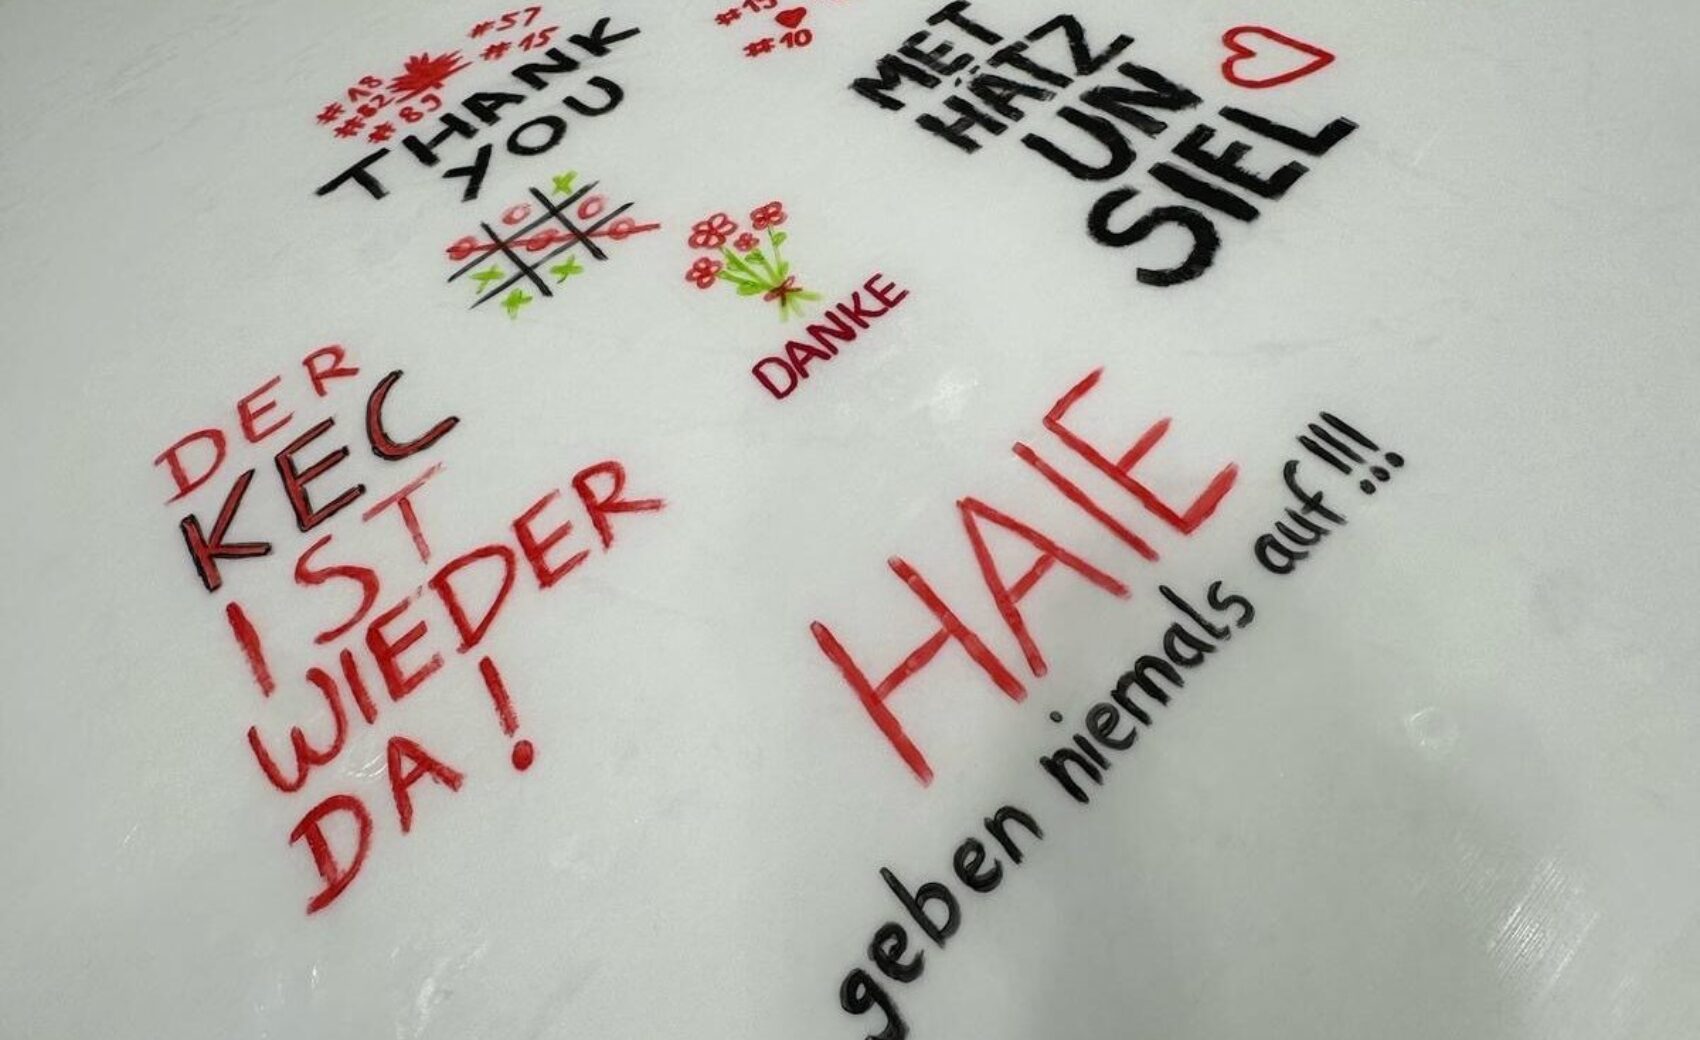 #57
#15
#18
#82
#89
THANK
YOU
#10
MET
HÄTZ
UN
SIEL
DANKE
DER
KEC
IST
WIEDER
DA!
HAIE
geben niemals auf!!!